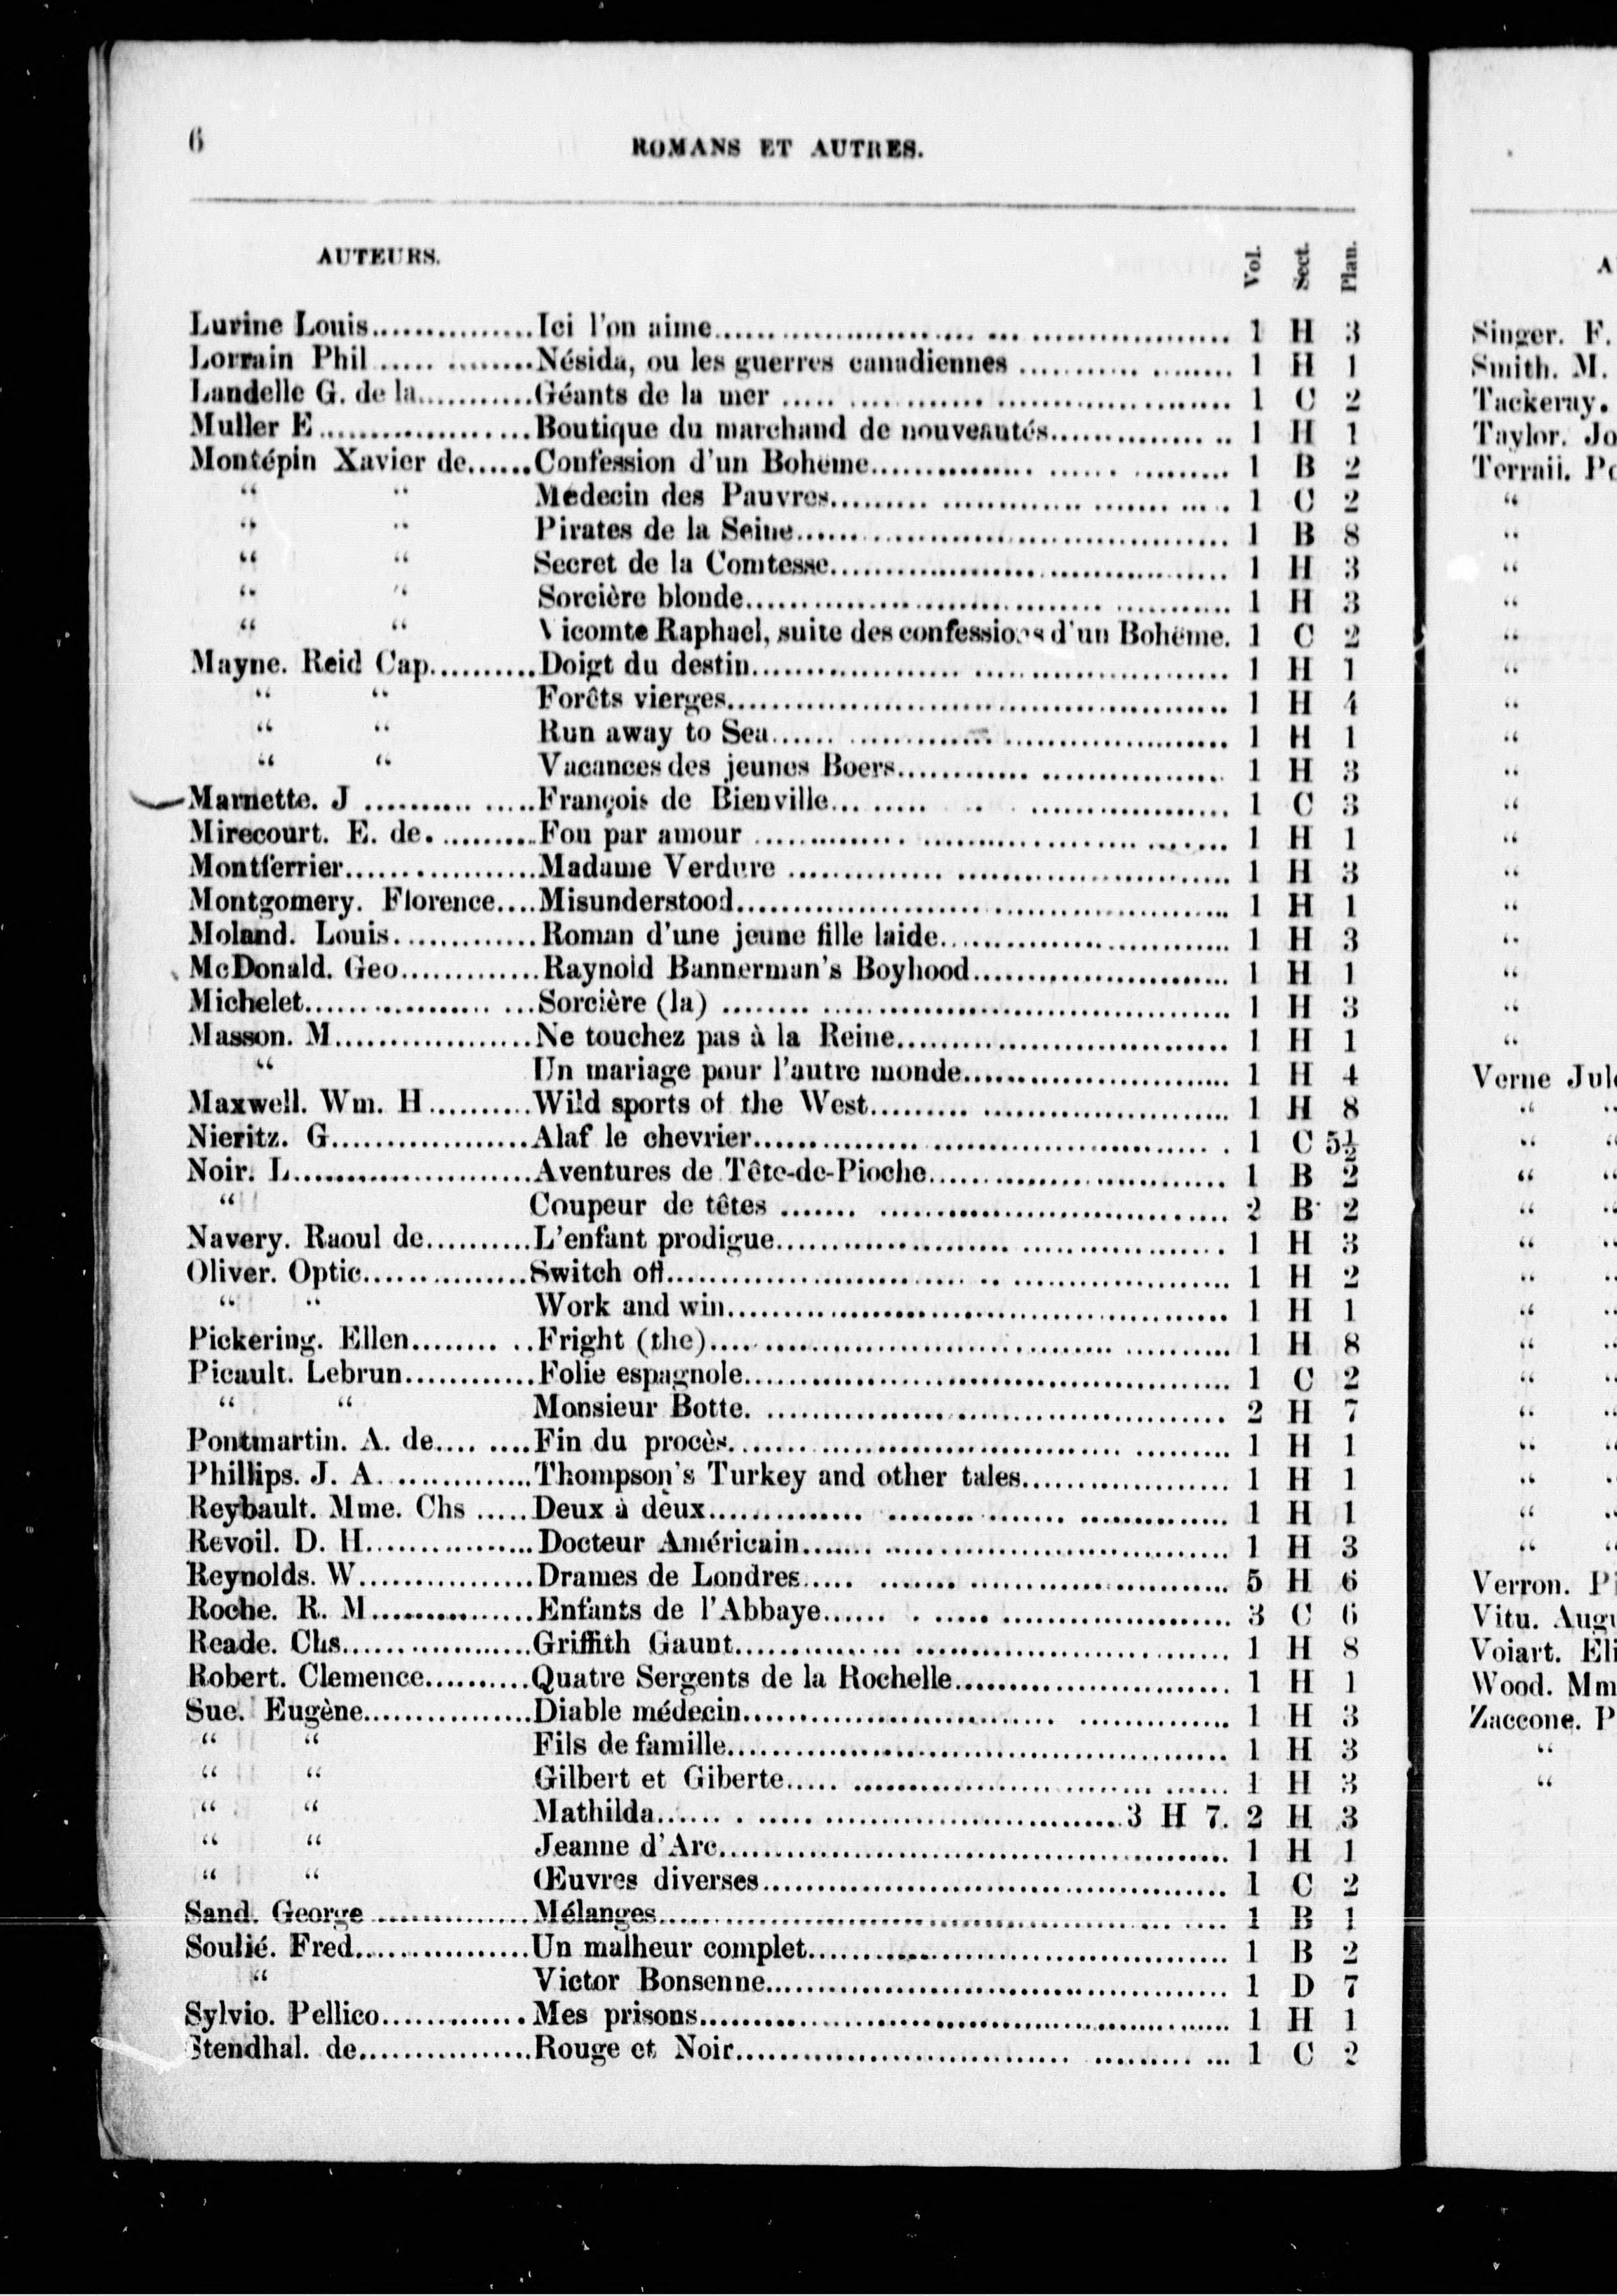 6
ROMANS ET AUTRES.
AUTEURS. Vol. Sect. Plan.
Lurine Louis...............Ici l'on aime.......... 1 H 3
Lorrain Phil..............Nésida, ou les guerres canadiennes.......... 1 H 1
Landelle G. de la...........Géants de la mer.......... 1 C 2
Muller E...................Boutique du marchand de nouveautés.......... 1 H 1
Montépin Xavier de......Confession d'un Bohème.......... 1 B 2
“ “ Médecin des Pauvres.......... 1 C 2
“ “ Pirates de la Seine.......... 1 B 8
“ “ Secret de la Comtesse.......... 1 H 3
“ “ Sorcière blonde.......... 1 H 3
“ “ Vicomte Raphael, suite des confessions d'un Bohème. 1 C 2
Mayne. Reid Cap..........Doigt du destin.......... 1 H 1
“ “ Forêts vierges.......... 1 H 4
“ “ Run away to Sea.......... 1 H 1
“ “ Vacances des jeunes Boers.......... 1 H 3
Marnette. J...............François de Bienville.......... 1 C 3
Mirecourt. E. de..........Fou par amour.......... 1 H 1
Montferrier..................Madame Verdure.......... 1 H 3
Montgomery. Florence....Misunderstood.......... 1 H 1
Moland. Louis.............Roman d'une jeune fille laide.......... 1 H 3
McDonald. Geo.............Raynold Bannerman's Boyhood.......... 1 H 1
Michelet....................Sorcière (la).......... 1 H 3
Masson. M..................Ne touchez pas à la Reine.......... 1 H 1
“ Un mariage pour l'autre monde.......... 1 H 4
Maxwell. Wm. H..........Wild sports of the West.......... 1 H 8
Nieritz. G..................Alaf le chevrier.......... 1 C 5½
Noir. L.......................Aventures de Tête-de-Pioche.......... 1 B 2
“ Coupeur de têtes.......... 2 B 2
Navery. Raoul de..........L'enfant prodigue.......... 1 H 3
Oliver. Optic...............Switch off.......... 1 H 2
“ “ Work and win.......... 1 H 1
Pickering. Ellen..........Fright (the).......... 1 H 8
Picault. Lebrun............Folie espagnole.......... 1 C 2
“ “ Monsieur Botte.......... 2 H 7
Pontmartin. A. de.........Fin du procès.......... 1 H 1
Phillips. J. A..............Thompson's Turkey and other tales.......... 1 H 1
Reybault. Mme. Chs.....Deux à deux.......... 1 H 1
Revoil. D. H...............Docteur Américain.......... 1 H 3
Reynolds. W................Drames de Londres.......... 5 H 6
Roche. R. M...............Enfants de l'Abbaye.......... 3 C 6
Reade. Chs..................Griffith Gaunt.......... 1 H 8
Robert. Clemence..........Quatre Sergents de la Rochelle.......... 1 H 1
Sue. Eugène................Diable médecin.......... 1 H 3
“ “ Fils de famille.......... 1 H 3
“ “ Gilbert et Giberte.......... 1 H 3
“ “ Mathilda..........3 H 7. 2 H 3
“ “ Jeanne d'Arc.......... 1 H 1
“ “ Œuvres diverses.......... 1 C 2
Sand. George...............Mélanges.......... 1 B 1
Soulié. Fred................Un malheur complet.......... 1 B 2
“ Victor Bonsenne.......... 1 D 7
Sylvio. Pellico.............Mes prisons.......... 1 H 1
Stendhal. de................Rouge et Noir.......... 1 C 2
A
Singer. F.
Smith. M.
Tackeray.
Taylor. Jo
Terraii. Po
“
“
“
“
“
“
“
“
“
“
“
“
“
“
“
“
“
Verne Jule
“ “
“ “
“ “
“ “
“ “
“ “
“ “
“ “
“ “
“ “
“ “
“ “
“ “
“ “
Verron. Pi
Vitu. Augu
Voiart. Eli
Wood. Mm
Zaccone. P
“
“